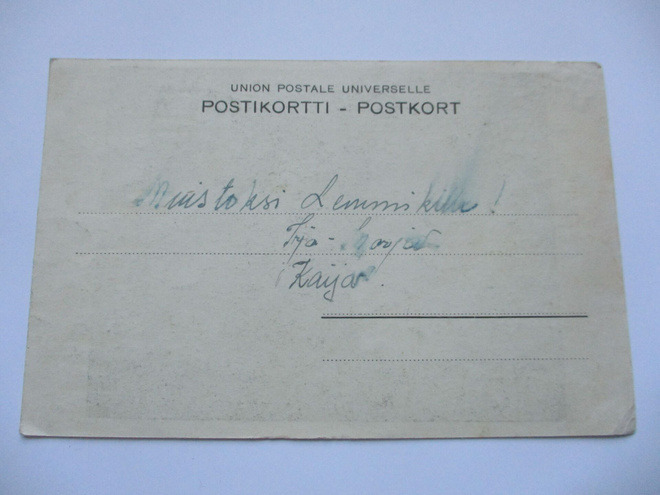 UNION POSTALE UNIVERSELLE
POSTIKORTTI - POSTKORT
Muistoksi Lemmikille!
Kaija.